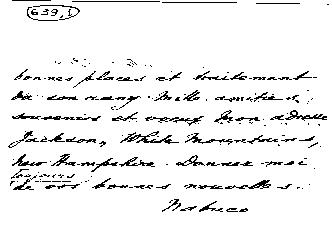 639,1
bonnes places et traitement
du son rang. Mille amitiés,
souvenirs et voeux. Mon adresse
Jackson, White Mountains,
New Hampshire. Donnez moi
toujours
de vos bonnes nouvelles.
Nabuco